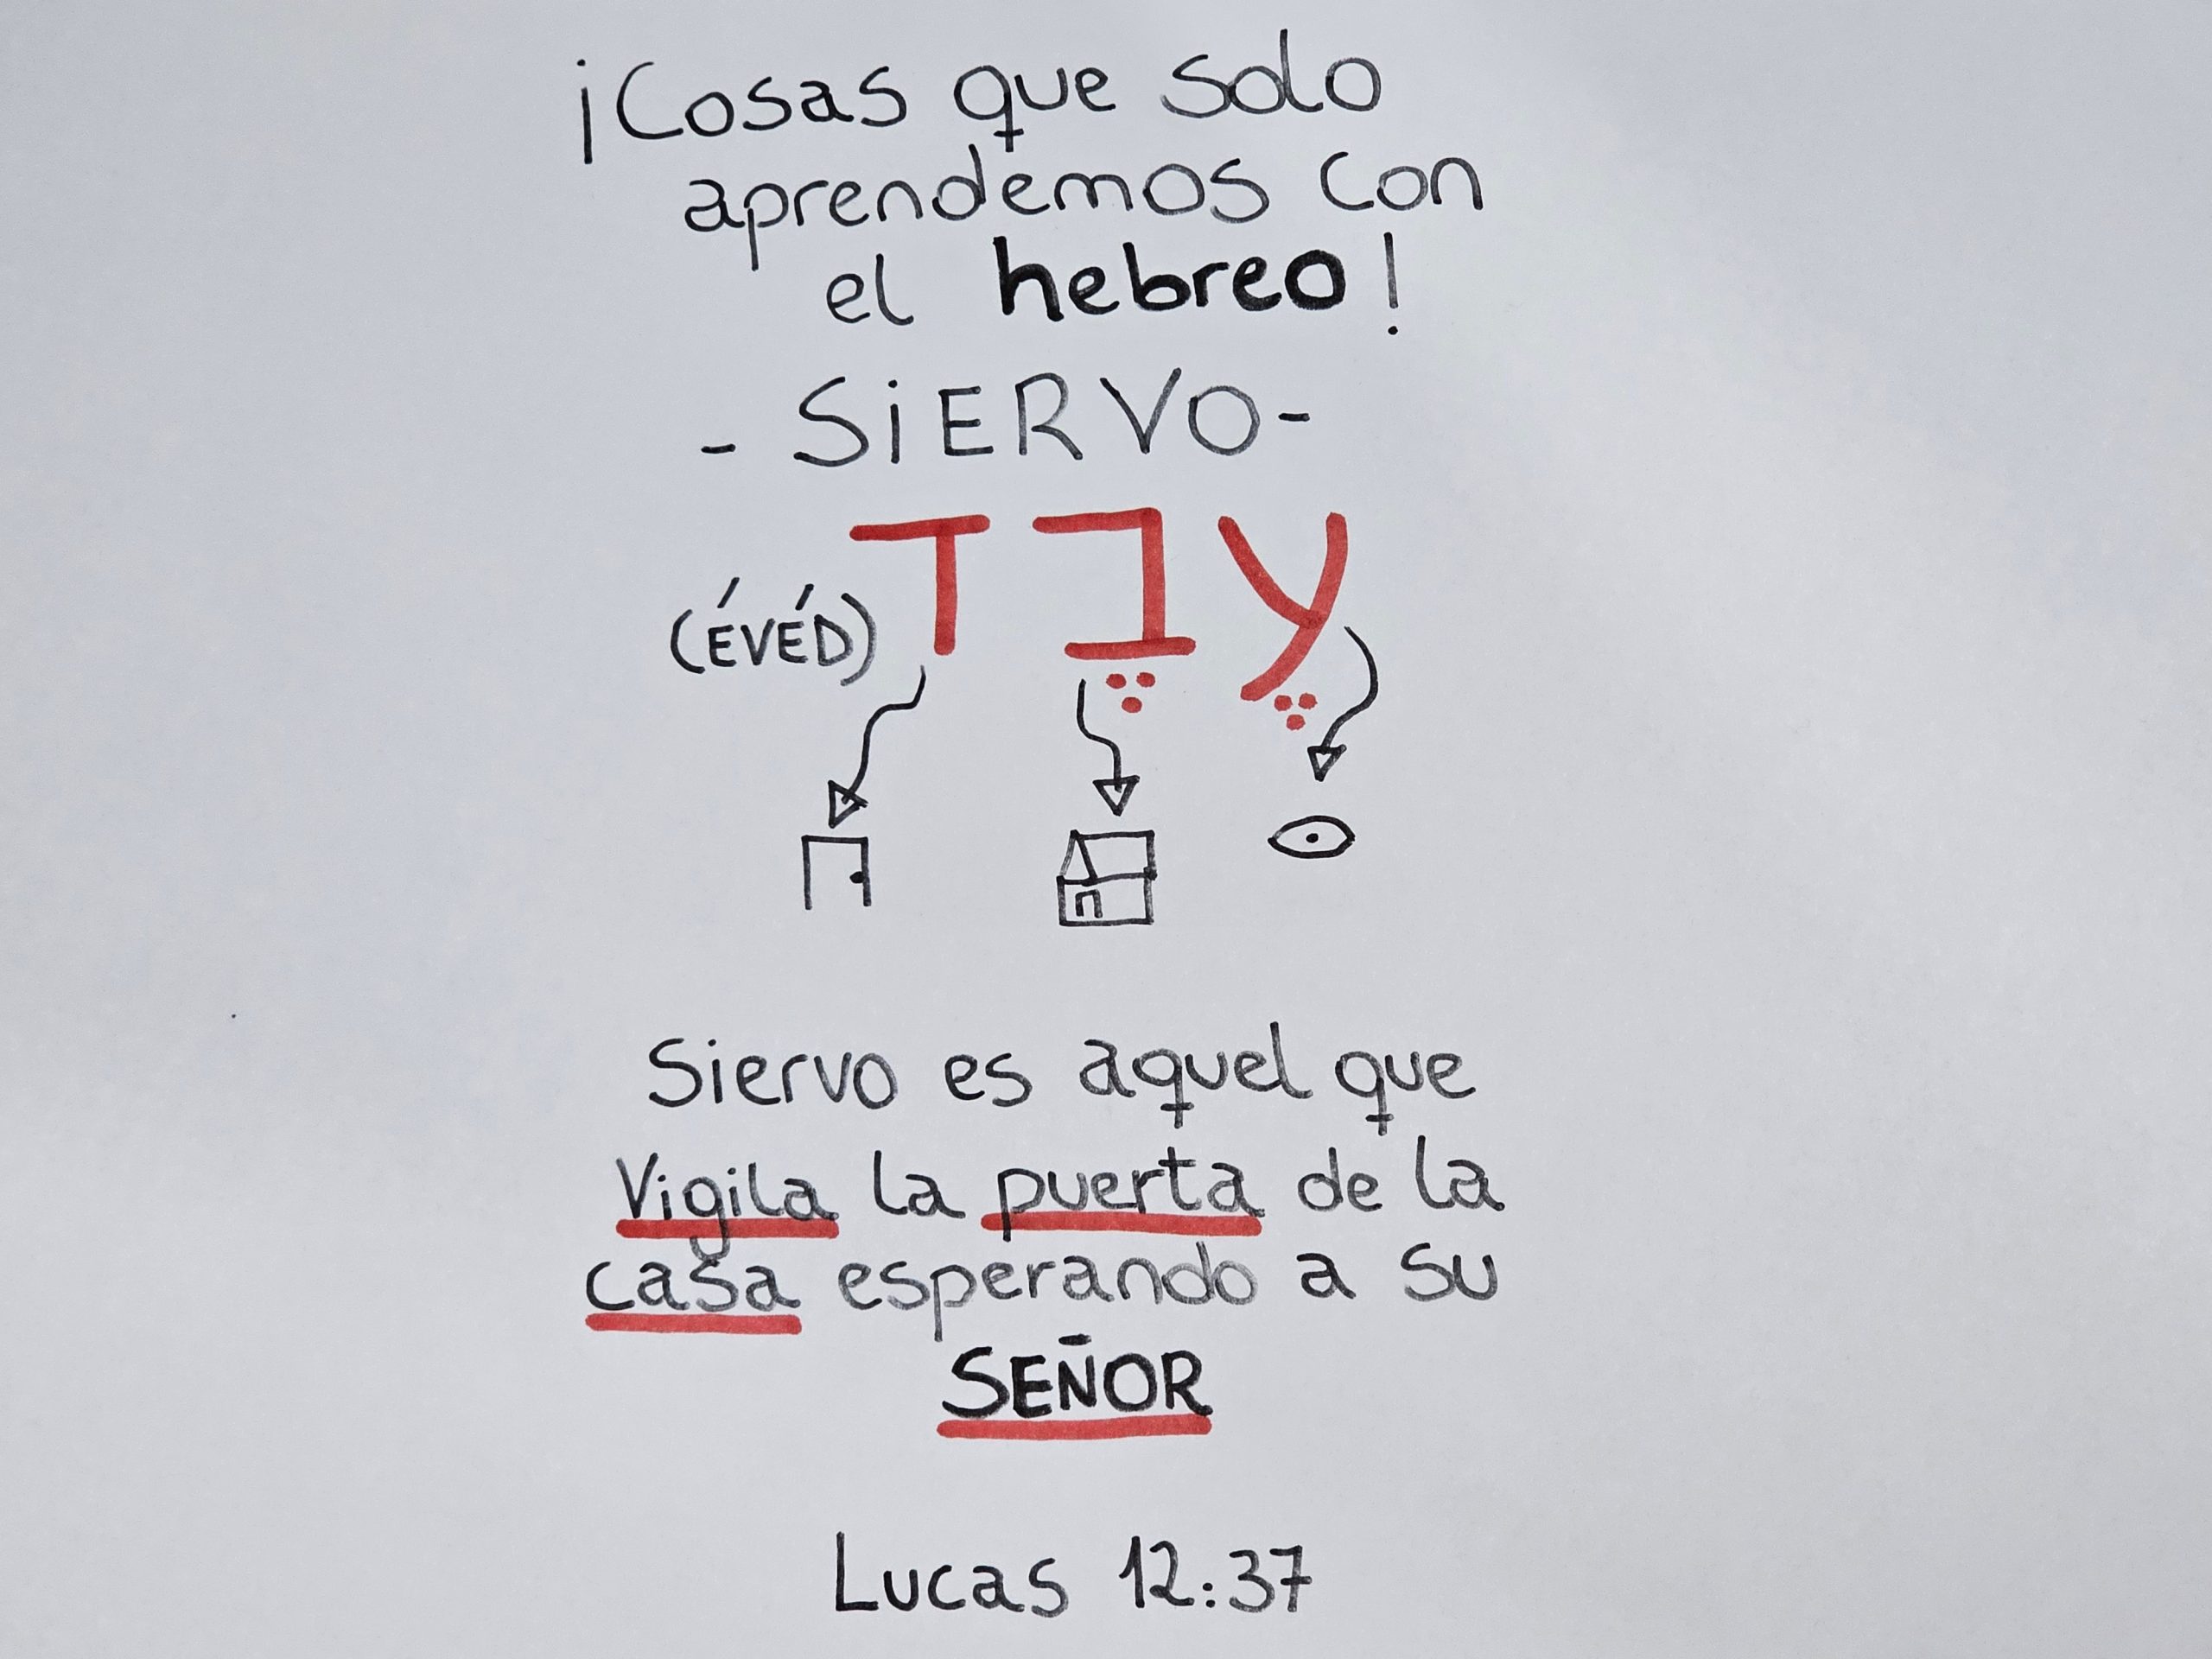 ¡Cosas que solo
aprendemos con
el hebreo!
- SiERVO -
עֶבֶד
(ÉVÉD)
Siervo es aquel que
Vigila la puerta de la
casa esperando a su
SEÑOR
Lucas 12:37